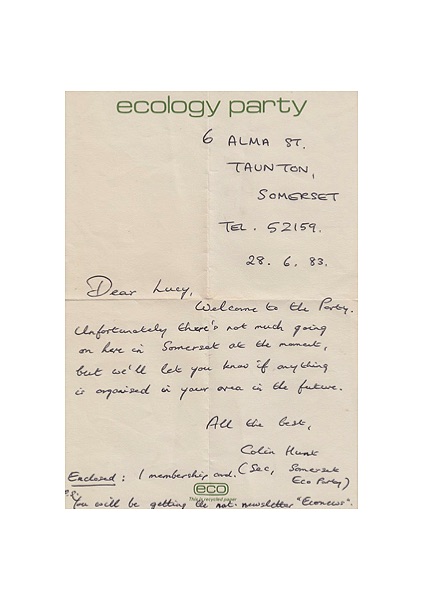 ecology party
6 ALMA ST.
TAUNTON,
SOMERSET
TEL. 52159.
28. 6. 83.
Dear Lucy,
Welcome to the Party.
Unfortunately there's not much going
on here in Somerset at the moment,
but we'll let you know if anything
is organised in your area in the future.
All the best,
Colin Hunt
(Sec, Somerset
Eco Party)
Enclosed: 1 membership card.
eco
This is recycled paper
P.S. You will be getting the nat. newsletter "Econews".